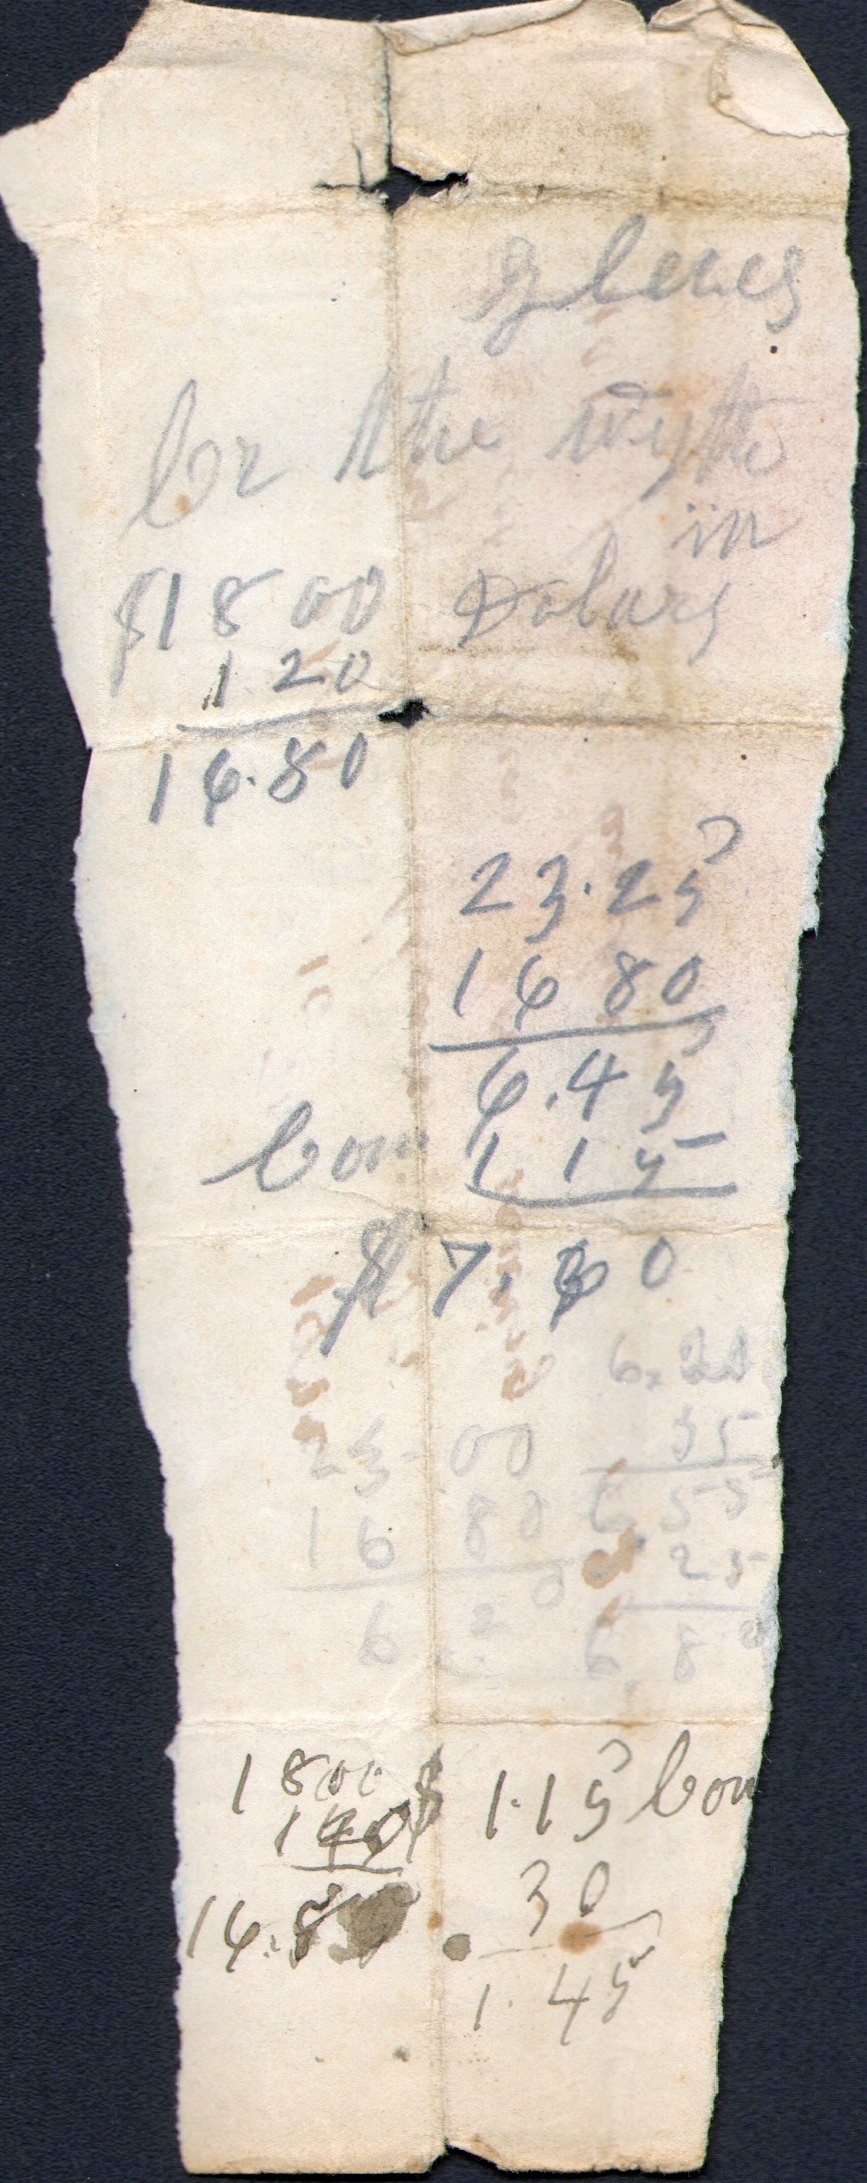 gleves
br the wyth
in
$1800 Dolars
120
16.80
23.25
16 80
6.45
Com 1 15
$ 7.60
6.20
35
23.00
6 55
16 80
25
6.20
6.80
1800 $ 1.15 Com
30
16.80
1.45